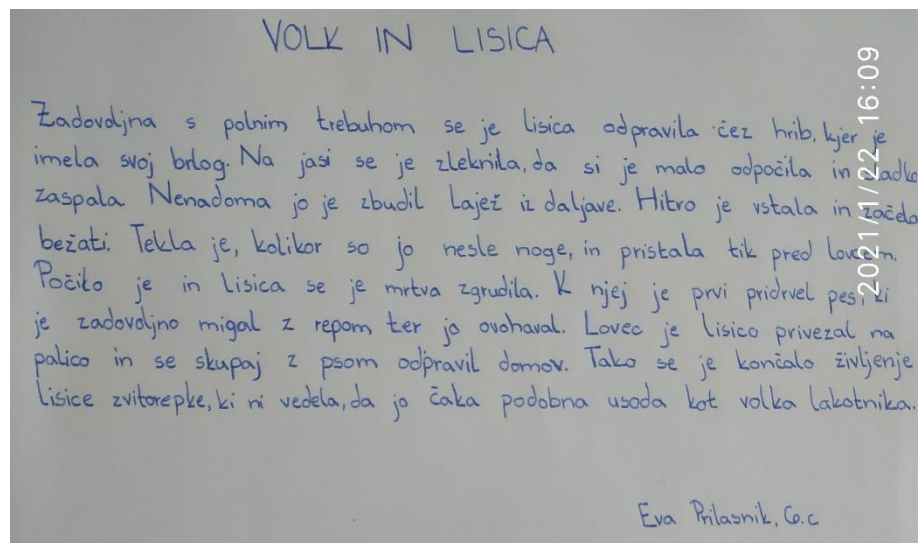 VOLK IN LISICA
Zadovoljna s polnim trebuhom se je lisica odpravila čez hrib, kjer je
imela svoj brlog. Na jasi se je zleknila, da si je malo odpočila in sladko
zaspala Nenadoma jo je zbudil lajež iz daljave. Hitro je vstala in začela
bežati. Tekla je, kolikor so jo nesle noge, in pristala tik pred lovcem.
Počilo je in lisica se je mrtva zgrudila. K njej je prvi pridrvel pes, ki
je zadovoljno migal z repom ter jo ovohaval. Lovec je lisico privezal na
palico in se skupaj z psom odpravil domov. Tako se je končalo življenje
lisice zvitorepke, ki ni vedela, da jo čaka podobna usoda kot volka lakotnika.
Eva Prilasnik, 6.c
2021/1/22 16:09